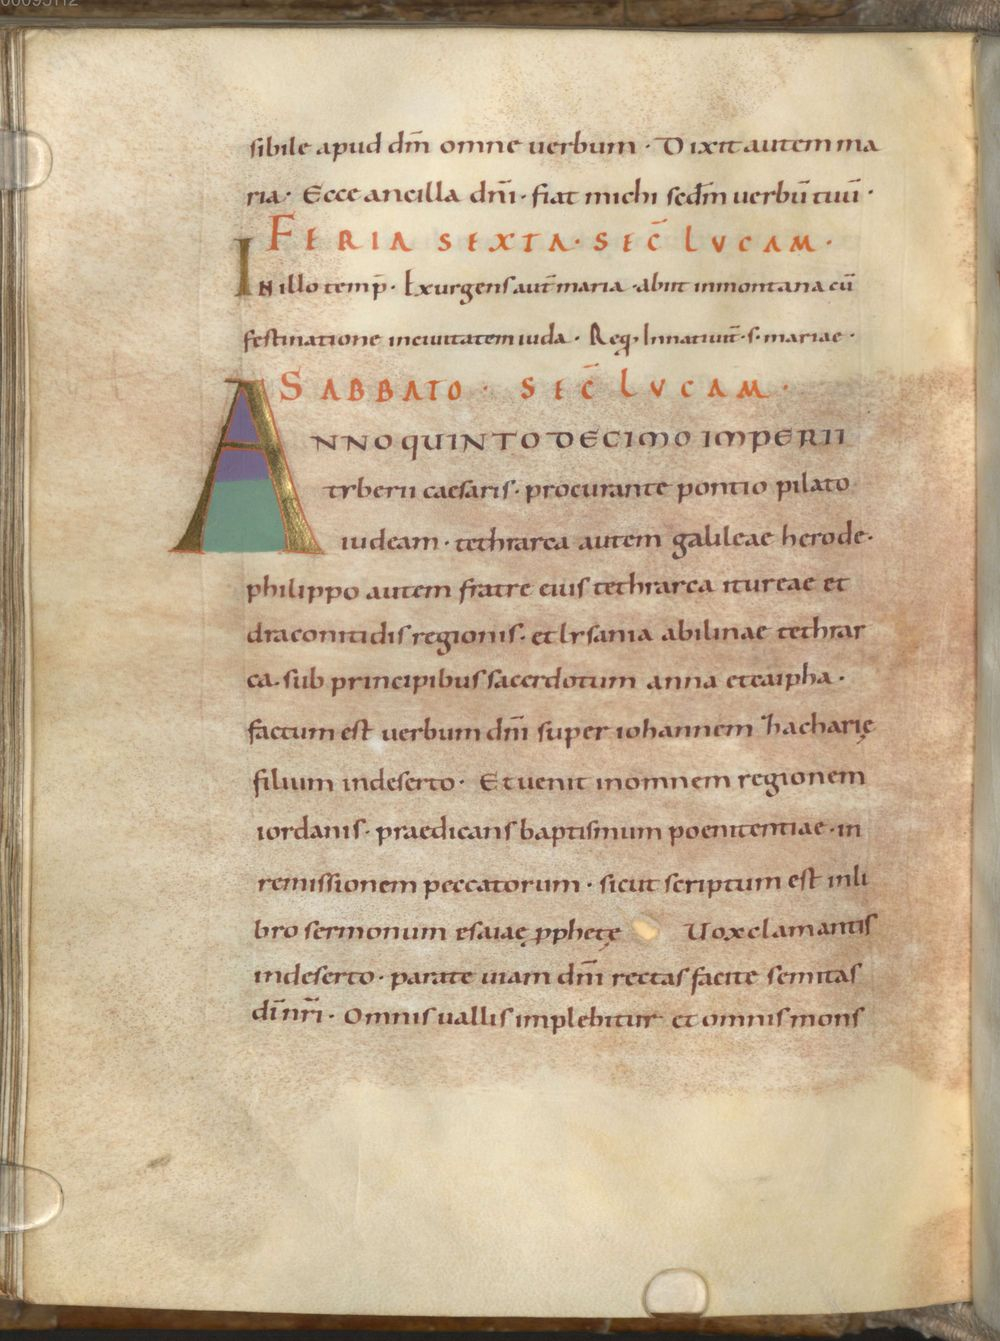 sibile apud dm̄ omne uerbum · Dixit autem ma
ria · Ecce ancilla dn̄i · fiat michi scd̄m uerbū tuū ·
FERIA SEXTA · SEC̄ LVCAM ·
In illo temp̄ · Exurgens aut̄ maria · abiit in montana cū
festinatione in ciuitatem iuda · Req̄ · In natiuit̄ · s · mariae ·
SABBATO · SEC̄ LVCAM ·
ANNO QUINTO DECIMO IMPERII
tyberii caesaris · procurante pontio pilato
iudeam · tethrarca autem galileae herode ·
philippo autem fratre eius tethrarca itureae et
draconitidis regionis · et lysania abilinae tethrar
ca · sub principibus sacerdotum anna et caipha ·
factum est uerbum dn̄i super iohannem zacharię
filium in deserto · Et uenit in omnem regionem
iordanis · praedicans baptismum poenitentiae · in
remissionem peccatorum · sicut scriptum est in li
bro sermonum esaiae p̱phetę Uox clamantis
in deserto · parate uiam dn̄i rectas facite semitas
dī nr̄i · Omnis uallis implebitur et omnis mons